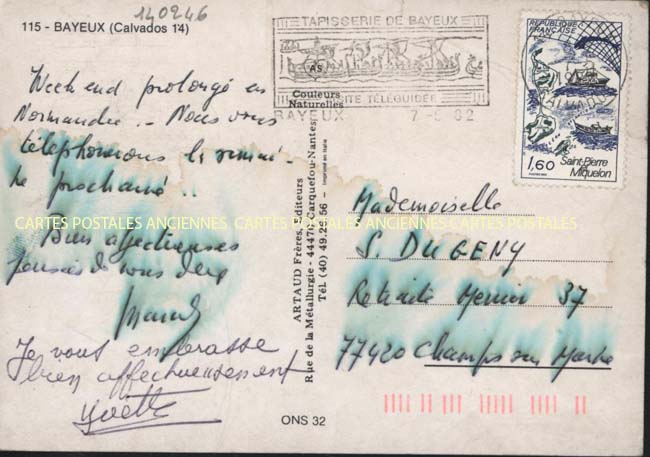 140246
115 - BAYEUX (Calvados 14)
TAPISSERIE DE BAYEUX
VISITE TÉLÉGUIDÉE
BAYEUX 7-6 82
AS
Couleurs
Naturelles
RÉPUBLIQUE
FRANÇAISE
1,60
Saint-Pierre
et
Miquelon
CALVADOS
Week end prolongé en
Normandie.. Nous vous
téléphonerons la semai-
ne prochaine..
Bien affectueuses
pensées de nous deux
Marcel
Je vous embrasse
bien affectueusement
Yvette
ARTAUD Frères, Éditeurs
Rue de la Métallurgie - 44470 Carquefou-Nantes
Tél. (40) 49.29.56 - Imprimé en Italie
Mademoiselle
S. DUGENY
Retraite Mercier 37
77420 Champs sur Marne
CARTES POSTALES ANCIENNES CARTES POSTALES ANCIENNES CARTES POSTALES ANCIENNES
ONS 32